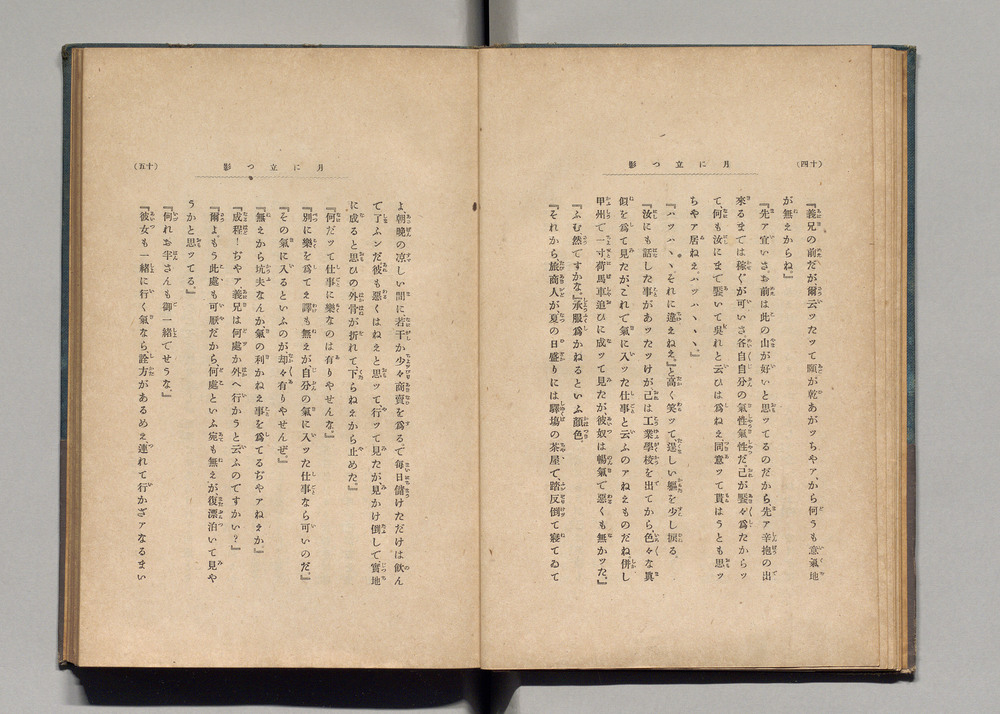 (十四)
月に立つ影
『義兄の前だが爾云ッたッて頤が乾あがッちやア、から何うも意氣地
が無えからね』
『先ア宜いさ、お前は此の山が好いと思ッてるのだから、先ア辛抱の出
來るまでは稼ぐが可いさ各自自分の氣性氣性だ、己が厭々爲たからッ
て、何も汝にまで厭いて呉れと云ひは爲ねえ、同意ッて貰はうとも思ッ
ちやア居ねえ、ハッハヽヽヽ。』
『ハッハヽヽ、それに違えねえ。』と高く笑ッて、逞しい軀を少し捩る。
『汝にも話した事があッたッけが己は工業學校を出てから色々な眞
似を爲て見たが、これで氣に入ッた仕事と云ふのアねえものだね、併し
甲州で一寸荷馬車追ひに成ッて見たが、彼奴は暢氣で惡くも無かッた。』
『ふむ然ですかな。』承服爲かねるといふ顏色。
『それから、旅商人が夏の日盛りには驛塲の茶屋で踏反倒て寢てゐて
(十五)
月に立つ影
よ朝晩の凉しい間に若干か少々商賣を爲る、で毎日儲けただけは飮ん
で了ふンだ、彼も惡くはねえと思ッて、行ッて見たが、見かけ倒しで實地
に成ると思ひの外骨が折れて、下らねえから止めた。』
『何だッて仕事に樂なのは有りやせんな。』
『別に樂を爲てえ譯も無えが自分の氣に入ッた仕事なら可いのだ。』
『その氣に入るといふのが却々有りやせんぜ。』
『無えから坑夫なんか氣の利かねえ事を爲てるぢやアねえか。』
『成程！ぢやア、義兄は何處か外へ行かうと云ふのですかい？』
『爾よ、もう此處も可厭だから、何處といふ宛も無えが、復漂泊いて見や
うかと思ッてる。』
『何れお牢さんも御一緒でせうな。』
『彼女も一緒に行く氣なら、詮方があるめえ連れて行かざアなるまい